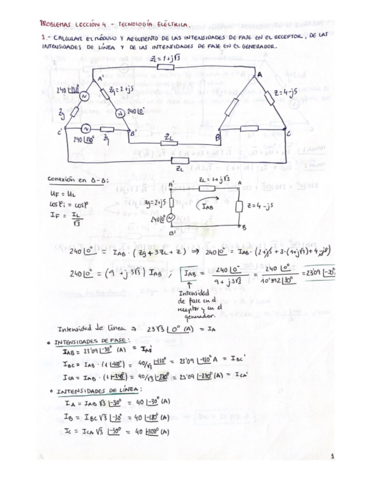 PROBLEMAS LECCIÓN 4.- TECNOLOGÍA ELÉCTRICA.
1.- CALCULAR EL MÓDULO Y ARGUMENTO DE LAS INTENSIDADES DE FASE EN EL RECEPTOR, DE LAS
INTENSIDADES DE LÍNEA Y DE LAS INTENSIDADES DE FASE EN EL GENERADOR.
ZL=1+j√3
A'
A
240
Zg=2+j5
Z=4-j5
240|0°
Zg
C'
240
B'
ZL
B
C
ZL
CONEXIÓN EN Δ-Δ:
UF = UL
IF = IL/√3
A'
ZL=1+j√3
A
Zg=2+j5
IAB
Z=4-j5
240|0°
B'
B
240|0° = IAB · (Zg + 3ZL + Z) ⇒ 240|0° = IAB · (2+j5+3·(1+j√3)+4-j5)
240|0° = (9 + j3√3) IAB ; IAB = 240|0° / 9+j3√3 = 240|0° / 10'392|30° = 23'09|-30°
Intensidad
de fase en el
receptor y en el
generador.
Intensidad de línea =
= IA
• INTENSIDADES DE FASE:
IAB = 23'09|-30° (A)
IBC = IAB
ICA = IAB
• INTENSIDADES DE LÍNEA:
IA = IAB √3 |-30° = 40
IB = IBC √3 |-30° = 40
IC = ICA √3 |-30° = 40
1